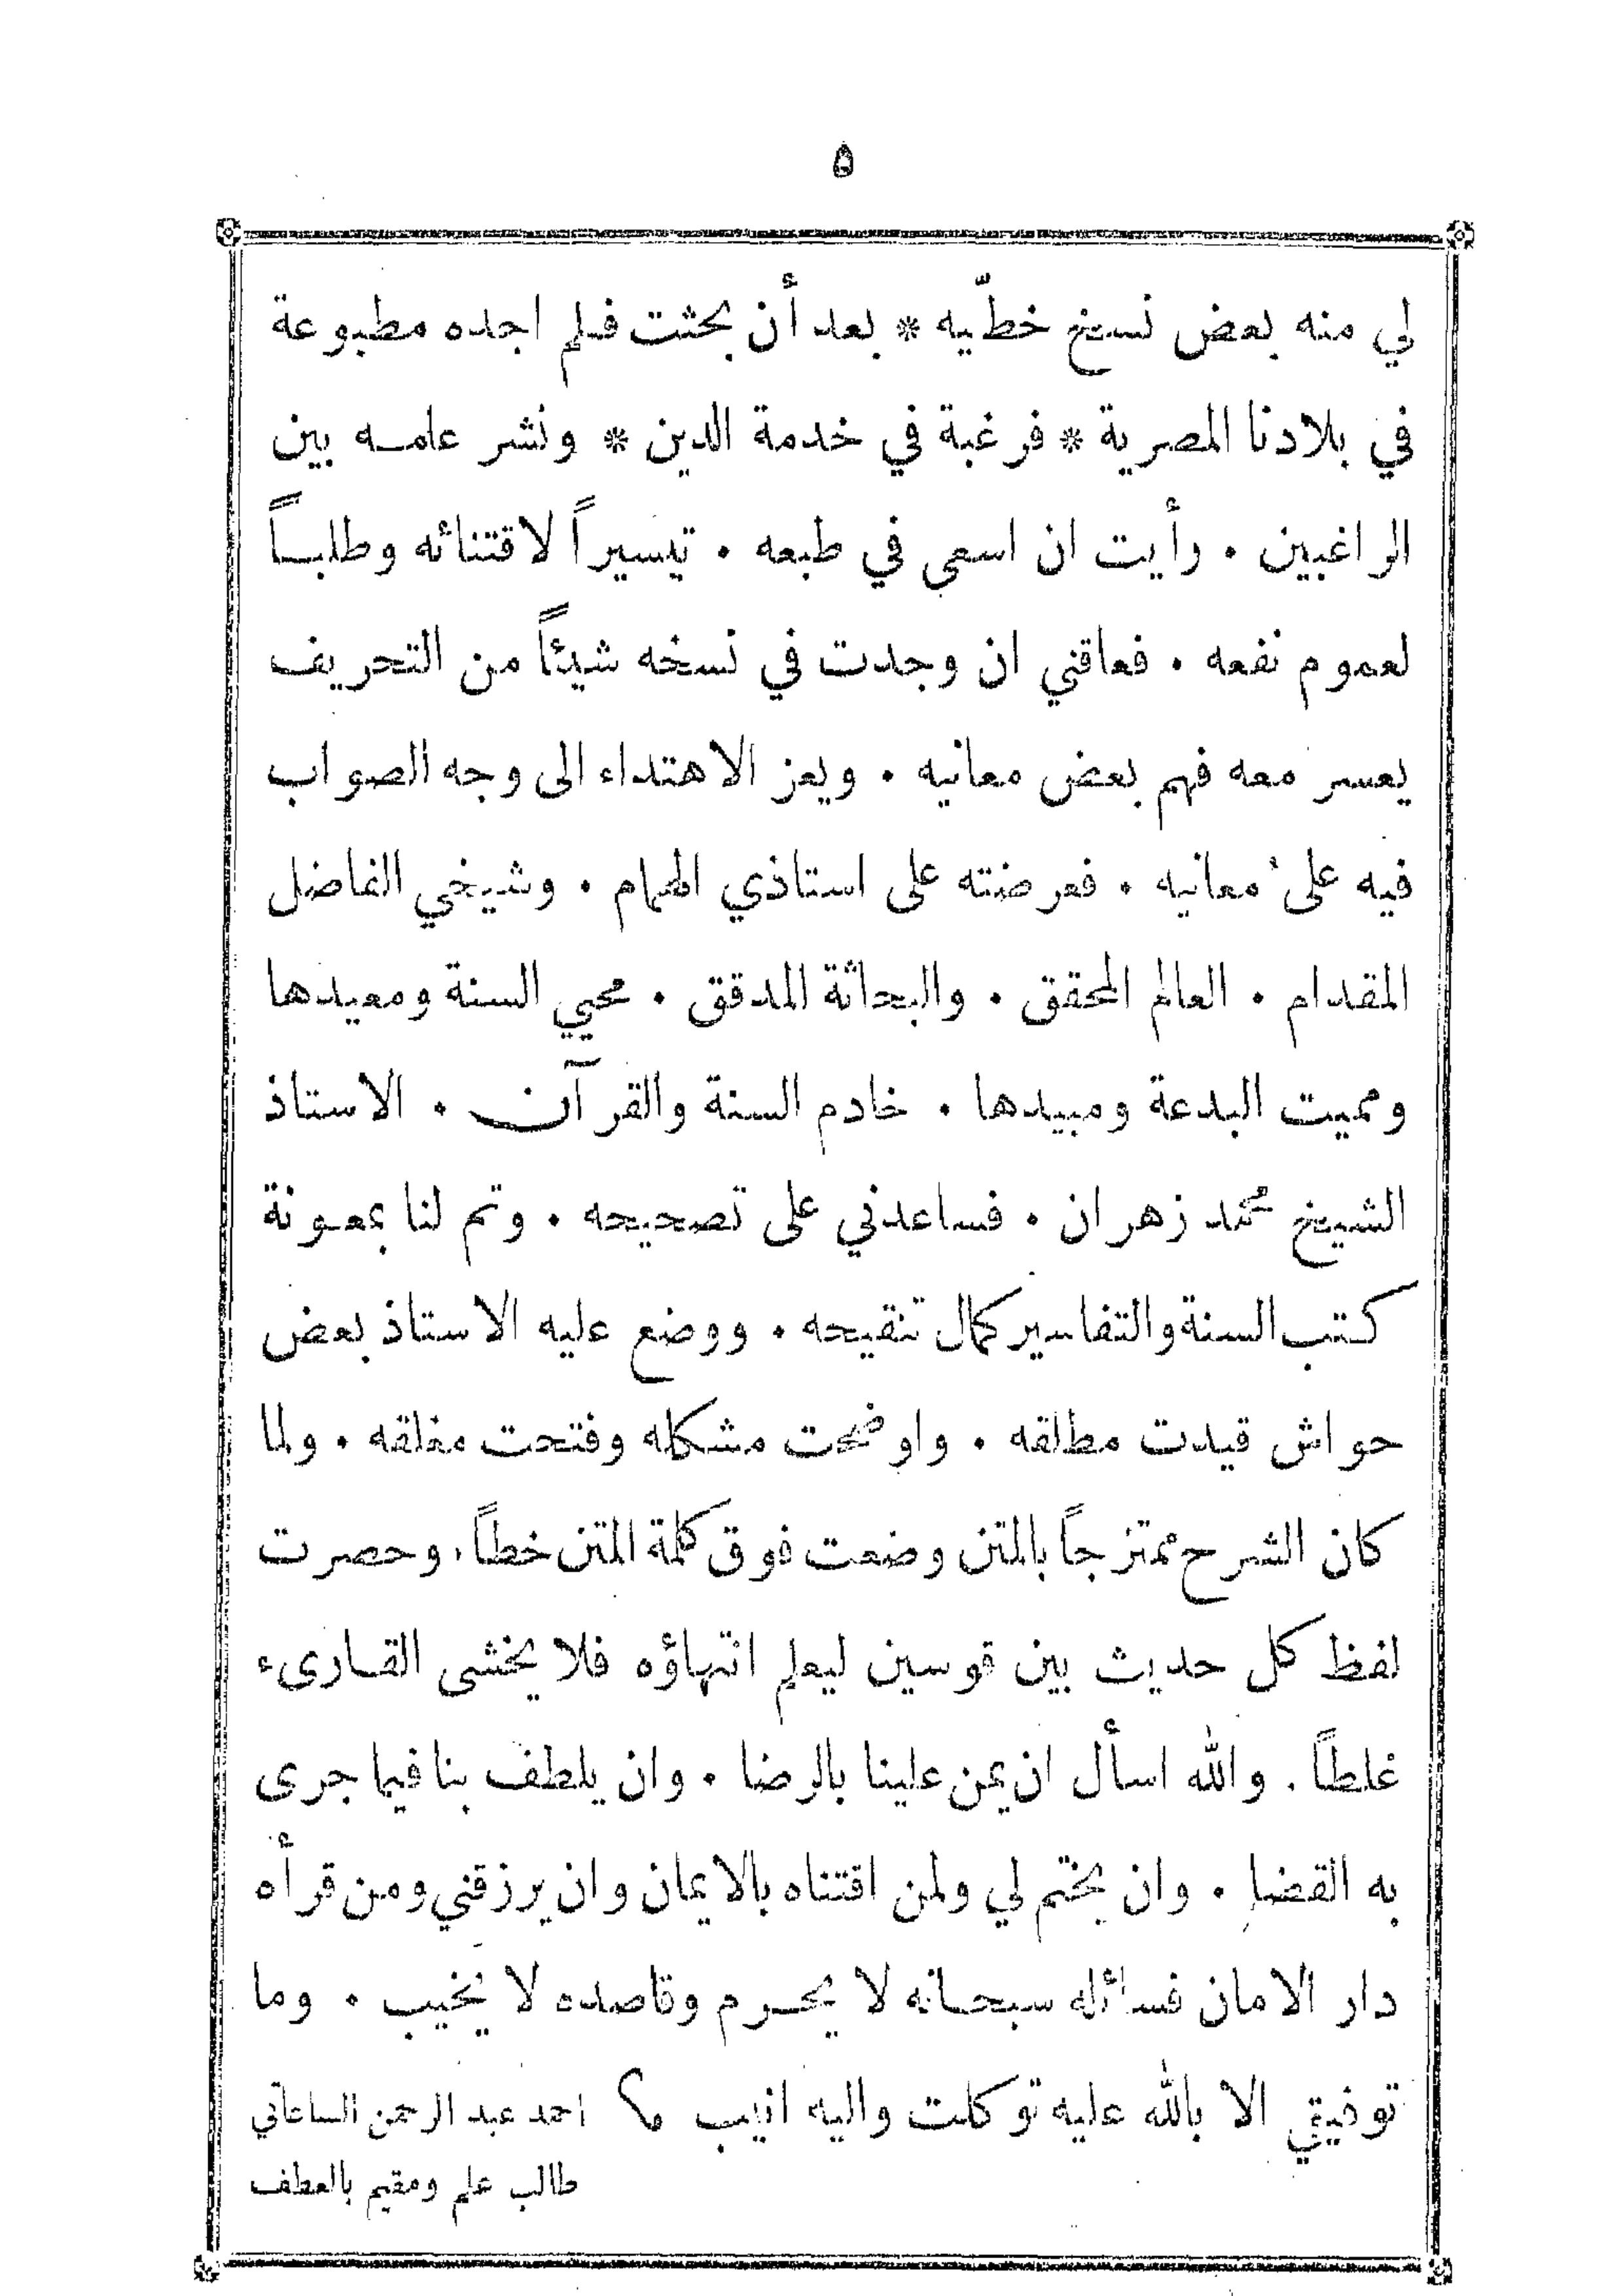 ٥
لي منه بعض نسخ خطّيه * بعد أن بحثت فلم اجده مطبوعة
في بلادنا المصرية * فرغبة في خدمة الدين * ونشر علمه بين
الراغبين . رأيت ان اسعى في طبعه . تيسيراً لاقتنائه وطلباً
لعموم نفعه . فعاقني ان وجدت في نسخه شيئاً من التحريف
يعسر معه فهم بعض معانيه . ويعز الاهتداء الى وجه الصواب
فيه على معانيه . فعرضته على استاذي الهمام . وشيخي الفاضل
المقدام . العالم المحقق . والبحاثة المدقق . محيي السنة ومعيدها
ومميت البدعة ومبيدها . خادم السنة والقرآن . الاستاذ
الشيخ محمد زهران . فساعدني على تصحيحه . وتم لنا بمعونة
كتب السنة والتفاسير كمال تنقيحه . ووضع عليه الاستاذ بعض
حواش قيدت مطلقه . واوضحت مشكله وفتحت مغلقه . ولما
كان الشرح ممتزجاً بالمتن وضعت فوق كلمة المتن خطاً . وحصرت
لفظ كل حديث بين قوسين ليعلم انتهاؤه فلا يخشى القارىء
غلطاً . والله اسأل ان يمن علينا بالرضا . وان يلطف بنا فيما جرى
به القضا . وان يختم لي ولمن اقتناه بالايمان وان يرزقني ومن قرأه
دار الامان فسائله سبحانه لا يحرم وقاصده لا يخيب . وما
توفيقي الا بالله عليه توكلت واليه انيب احمد عبد الرحمن الساعاتي
طالب علم ومقيم بالعطف